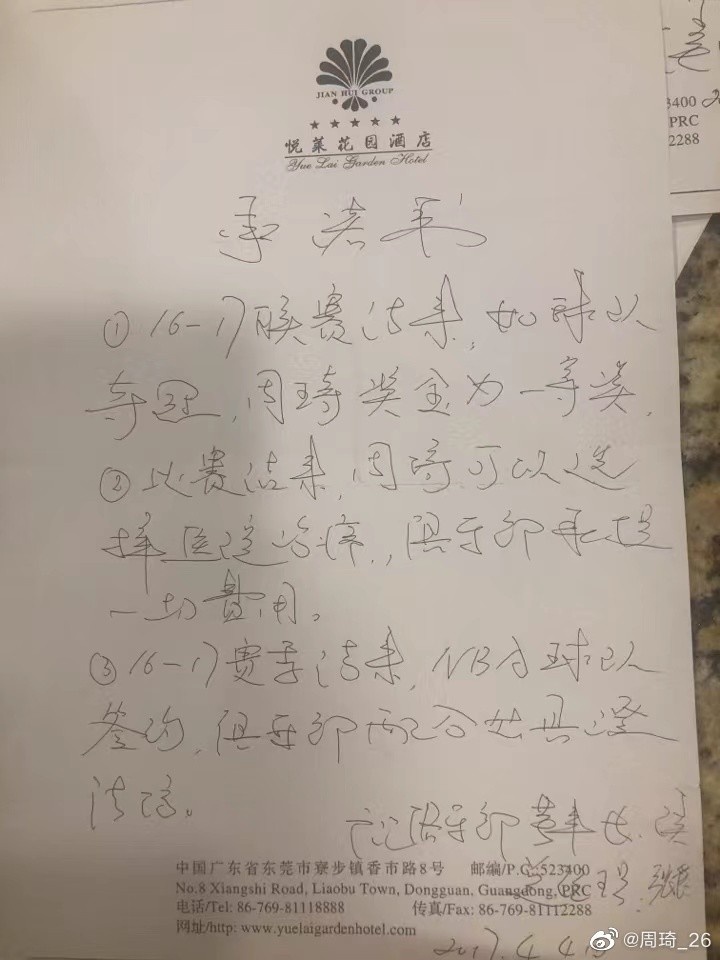 JIAN HUI GROUP
★★★★★
悦莱花园酒店
Yue Lai Garden Hotel
承诺书
① 16-17联赛结束，如球队
夺冠，周琦奖金为一等奖。
② 比赛结束，周琦可以选
择医逆治疗，俱乐部承担
一切费用。
③ 16-17赛季结束，NBA球队
签约，俱乐部配合出具澄
清信。
俱乐部
中国广东省东莞市寮步镇香市路8号 邮编/P.C:523400
No.8 Xiangshi Road, Liaobu Town, Dongguan, Guangdong, PRC
电话/Tel: 86-769-81118888 传真/Fax: 86-769-81112288
网址/http: www.yuelaigardenhotel.com
2017.4.4
3400
PRC
2288
@周琦_26